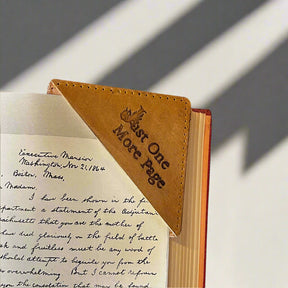 Just One
More Page
Executive Mansion
Washington, Nov 21, 1864
Boston, Mass,
Madam
I have been shown in the fi
partment a statement of the Adjutant
achusetts that you are the mother of
have died gloriously on the field of battle
ak and fruitless must be any word of
should attempt to beguile you from the
so overwhelming But I cannot refrain
you the consolation that may be found